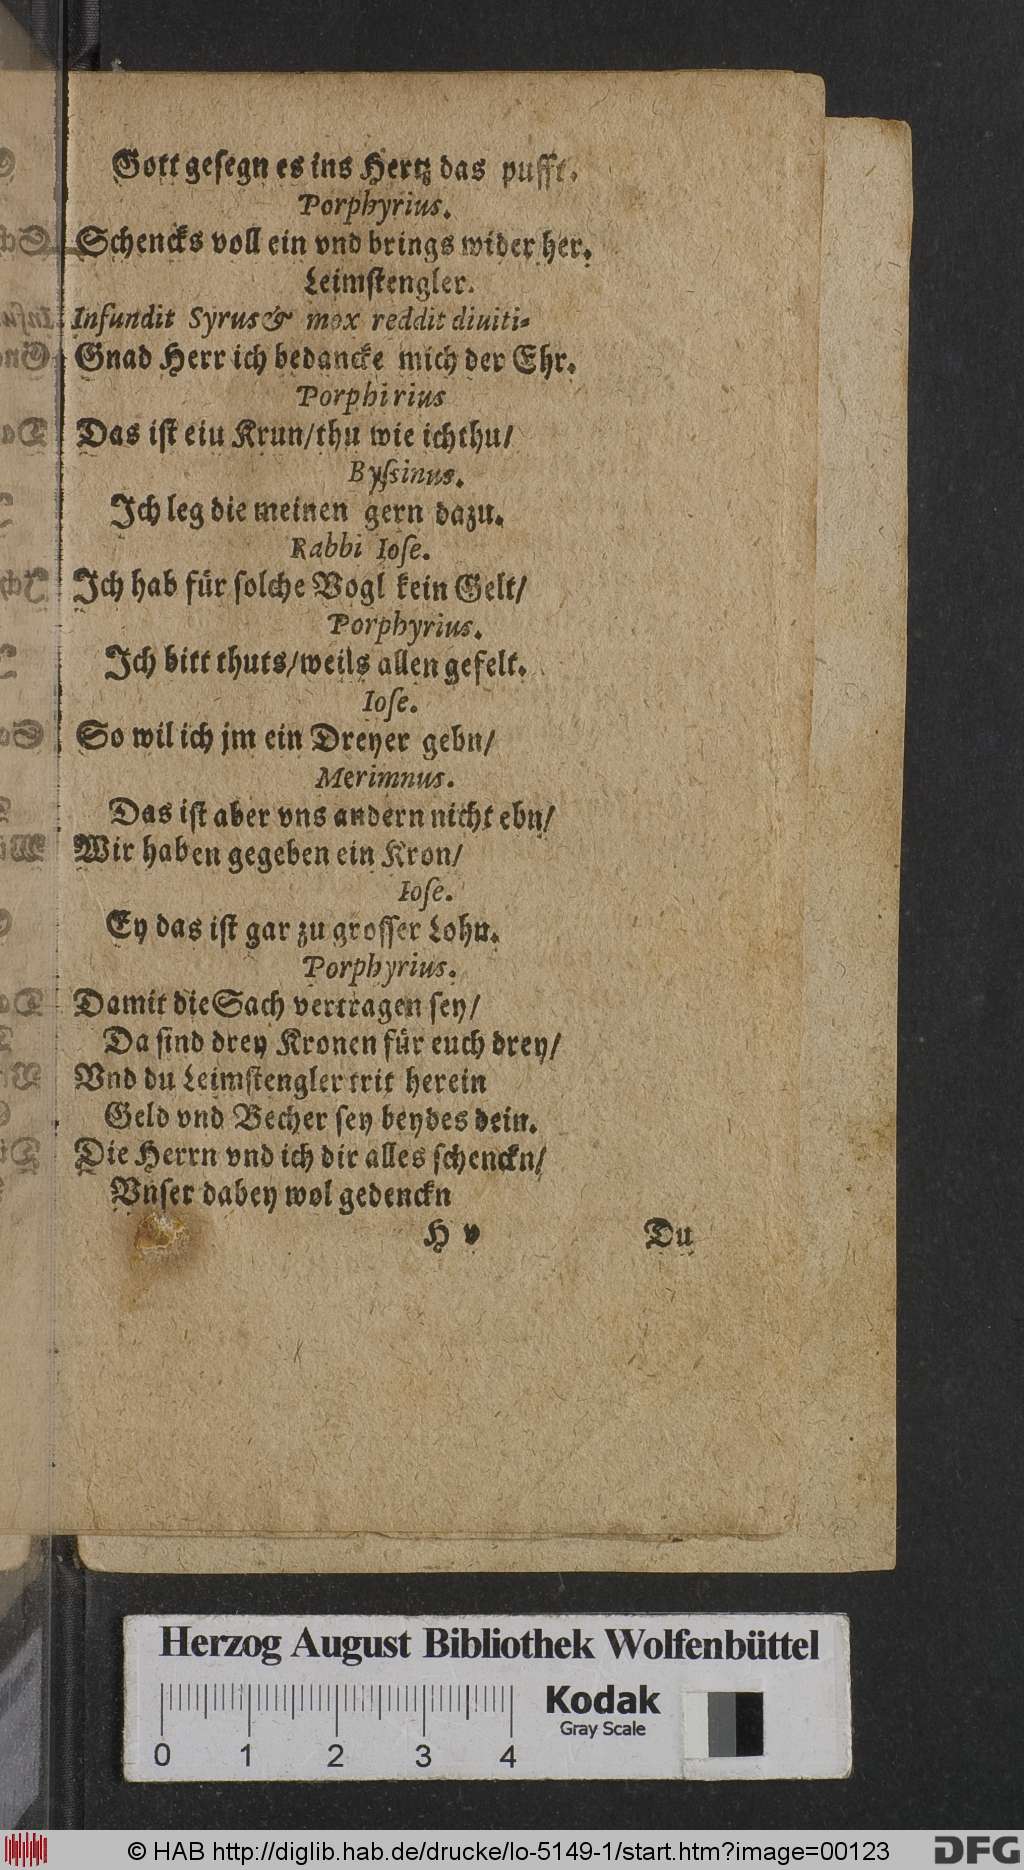 Gott gesegn es ins Hertz das pufft.
Porphyrius.
Schencks voll ein vnd brings wider her.
Leimstengler.
Infundit Syrus & mox reddit diuiti-
Gnad Herr ich bedancke mich der Ehr.
Porphirius
Das ist eiu Krun/thu wie ich thu/
Byſsinus.
Ich leg die meinen gern dazu.
Rabbi Ioſe.
Ich hab für solche Vogl kein Gelt/
Porphyrius.
Ich bitt thuts/weils allen gefelt.
Ioſe.
So wil ich jm ein Dreyer gebn/
Merimnus.
Das ist aber vns andern nicht ebn/
Wir haben gegeben ein Kron/
Ioſe.
Ey das ist gar zu grosser Lohn.
Porphyrius.
Damit die Sach vertragen sey/
Da sind drey Kronen für euch drey/
Vnd du Leimstengler trit herein
Geld vnd Becher sey beydes dein.
Die Herrn vnd ich dir alles schenckn/
Vnser dabey wol gedenckn
H v Du
Herzog August Bibliothek Wolfenbüttel
Kodak
Gray Scale
0 1 2 3 4
© HAB http://diglib.hab.de/drucke/lo-5149-1/start.htm?image=00123
DFG